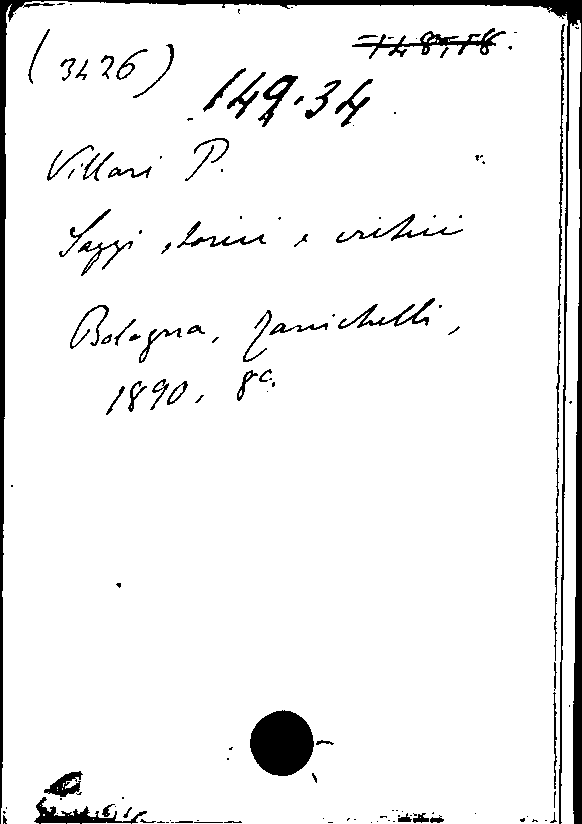 (3426)
148,18.
149.34
Villari P.
Saggi storici e critici
Bologna, Zanichelli,
1890, 8º.